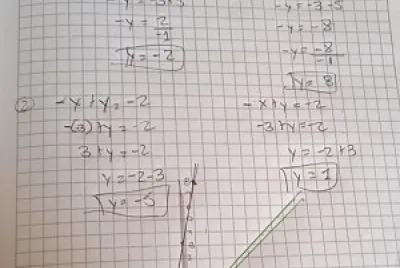 -y = 2/-1
y = -2
-y = -3-5
-y = -8
-y = -8/-1
y = 8
②
-x+y=-2
-(3)+y=-2
3+y=-2
y=-2-3
y=-5
-x+y=-2
-3+y=-2
y = -2+3
y = 1